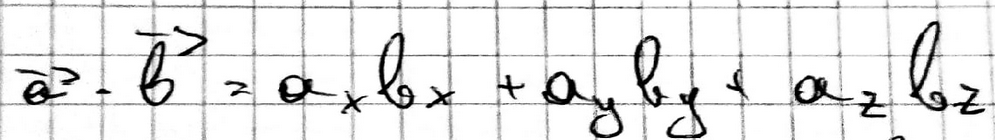 $\vec{a} \cdot \vec{b} = a_x b_x + a_y b_y + a_z b_z$